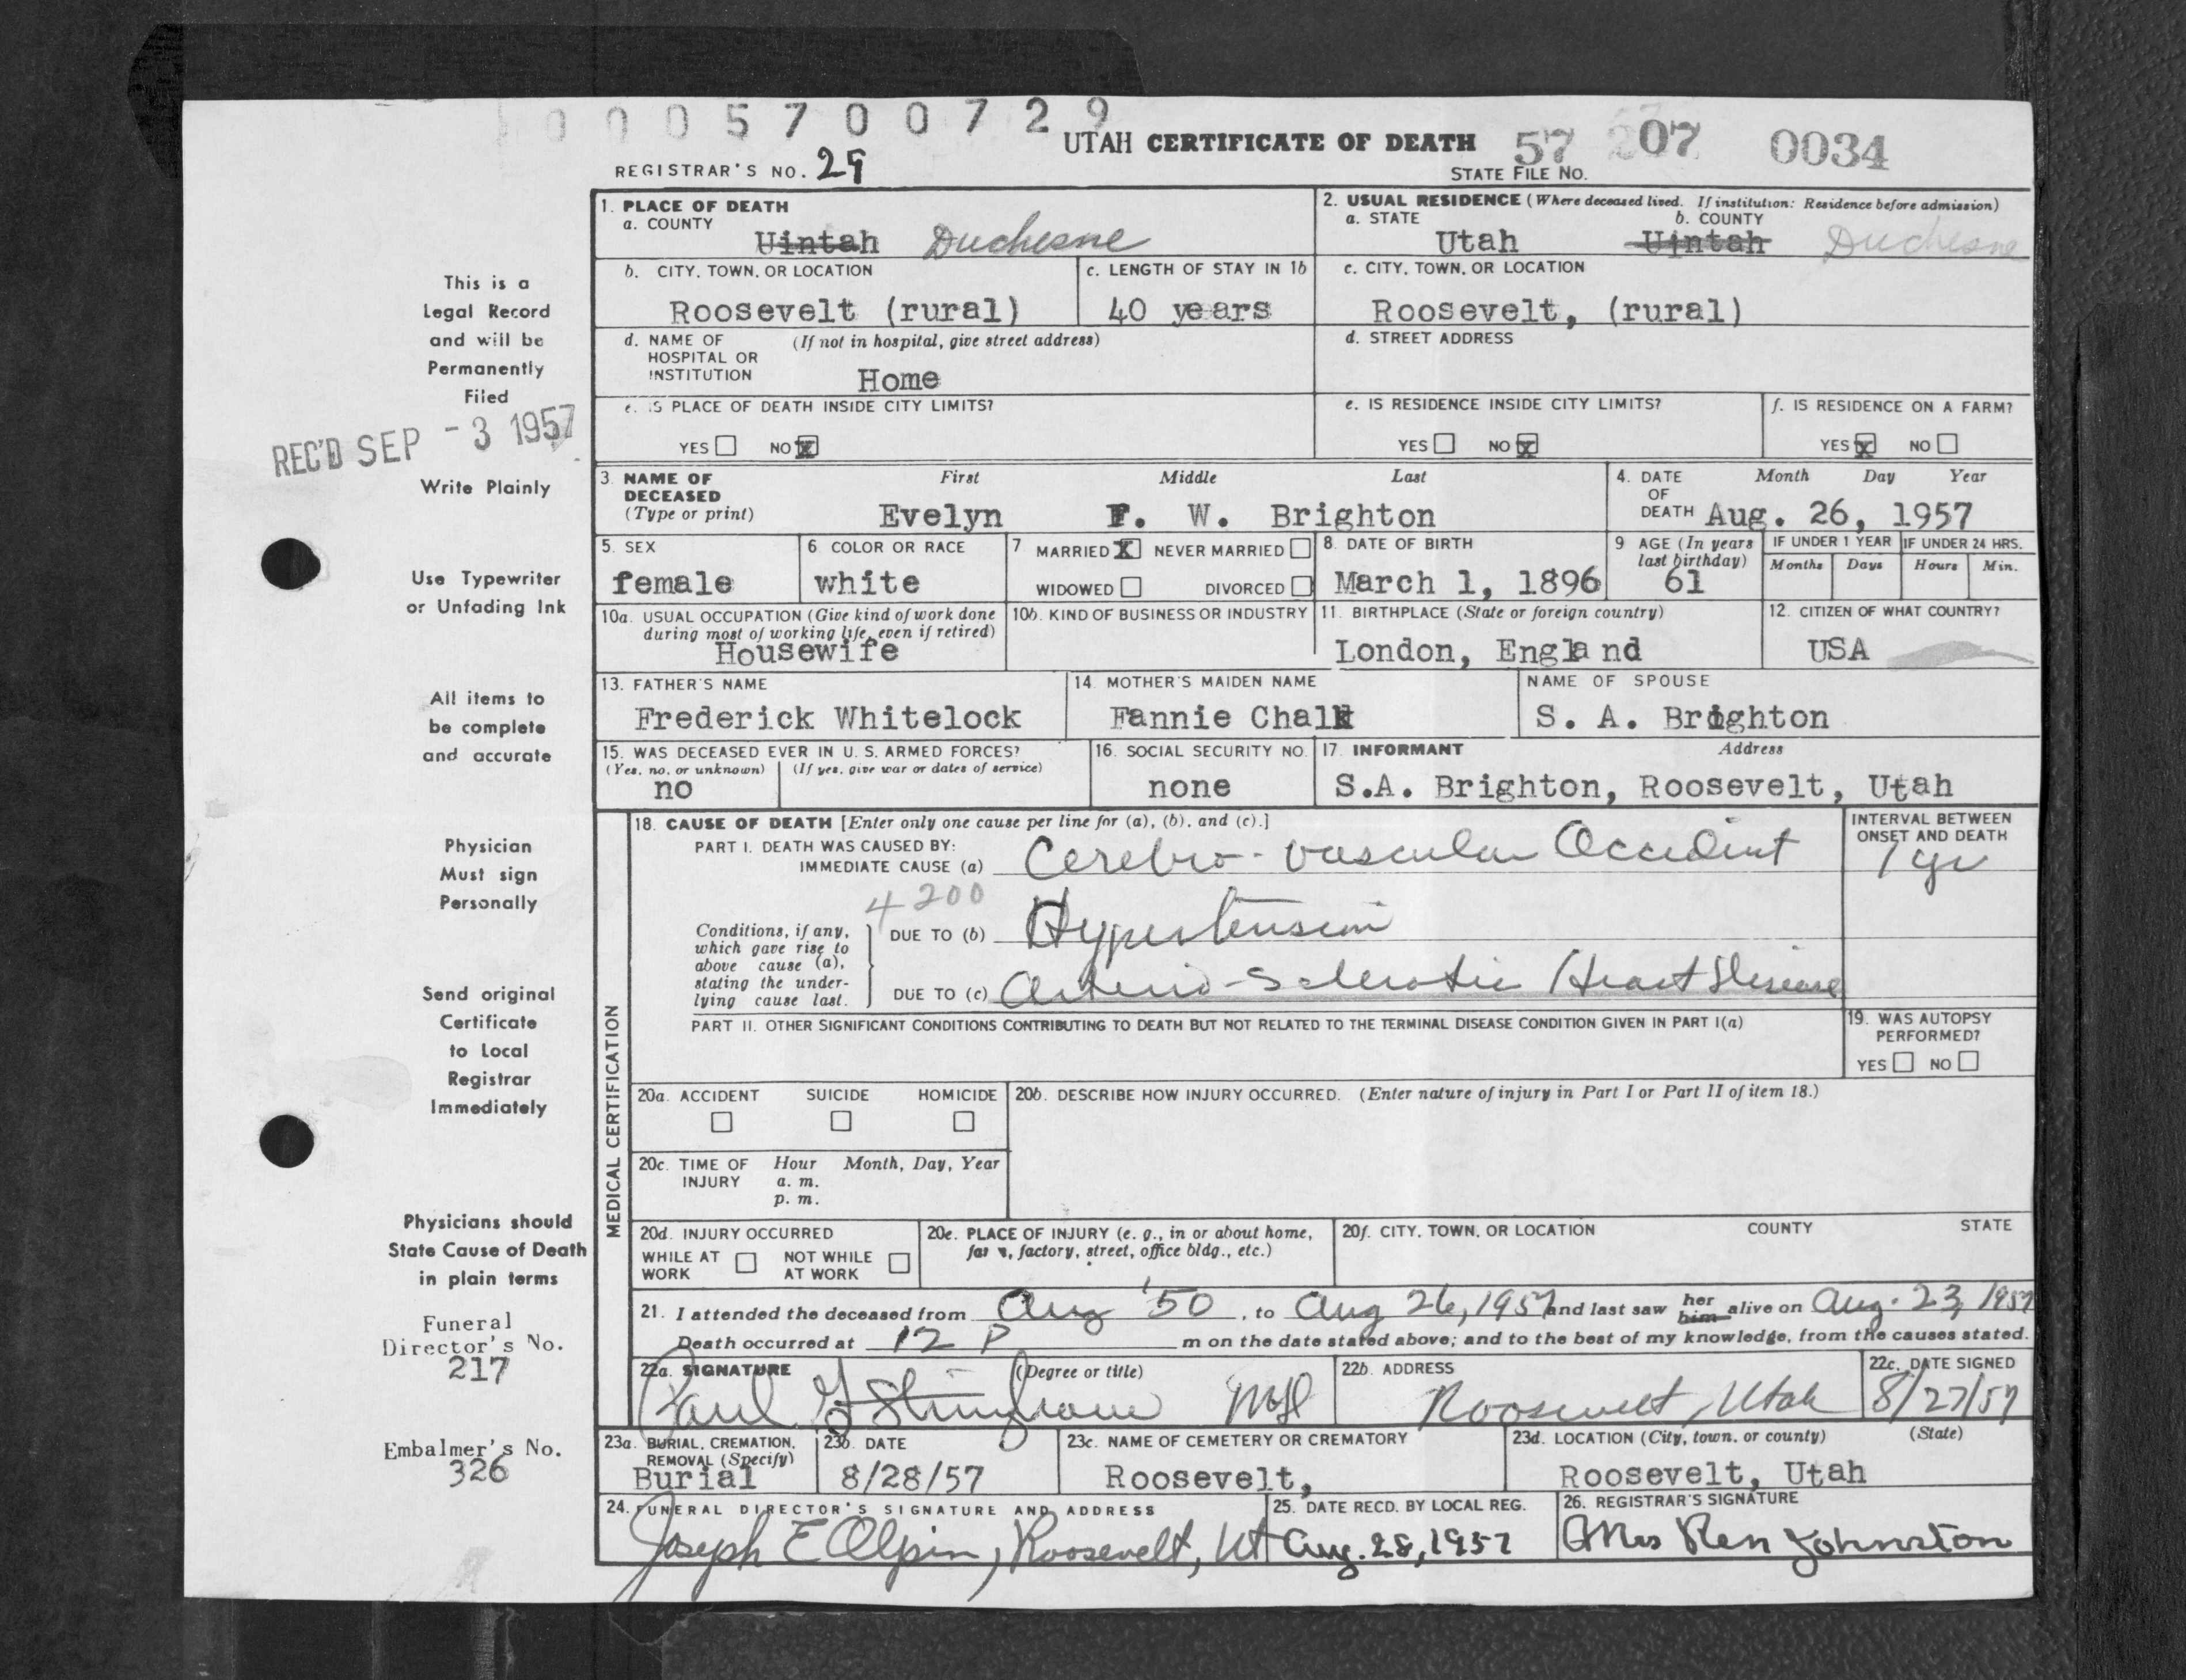 0005700729
UTAH CERTIFICATE OF DEATH 57 207 0034
REGISTRAR'S NO. 29
STATE FILE NO.
1. PLACE OF DEATH
a. COUNTY
Uintah Duchesne
2. USUAL RESIDENCE (Where deceased lived. If institution: Residence before admission)
a. STATE b. COUNTY
Utah Uintah Duchesne
b. CITY, TOWN, OR LOCATION
Roosevelt (rural)
c. LENGTH OF STAY IN 1b
40 years
c. CITY, TOWN, OR LOCATION
Roosevelt, (rural)
d. NAME OF (If not in hospital, give street address)
HOSPITAL OR
INSTITUTION Home
d. STREET ADDRESS
e. IS PLACE OF DEATH INSIDE CITY LIMITS?
YES NO X
e. IS RESIDENCE INSIDE CITY LIMITS?
YES NO X
f. IS RESIDENCE ON A FARM?
YES X NO
3. NAME OF First Middle Last
DECEASED
(Type or print) Evelyn F. W. Brighton
4. DATE Month Day Year
OF
DEATH Aug. 26, 1957
5. SEX
female
6 COLOR OR RACE
white
7 MARRIED X NEVER MARRIED
WIDOWED DIVORCED
8. DATE OF BIRTH
March 1, 1896
9 AGE (In years
last birthday)
61
IF UNDER 1 YEAR IF UNDER 24 HRS.
Months Days Hours Min.
10a. USUAL OCCUPATION (Give kind of work done
during most of working life, even if retired)
Housewife
10b. KIND OF BUSINESS OR INDUSTRY
11. BIRTHPLACE (State or foreign country)
London, England
12. CITIZEN OF WHAT COUNTRY?
USA
13. FATHER'S NAME
Frederick Whitelock
14. MOTHER'S MAIDEN NAME
Fannie Chalk
NAME OF SPOUSE
S. A. Brighton
15. WAS DECEASED EVER IN U. S. ARMED FORCES?
(Yes, no, or unknown) (If yes, give war or dates of service)
no
16. SOCIAL SECURITY NO.
none
17. INFORMANT Address
S.A. Brighton, Roosevelt, Utah
MEDICAL CERTIFICATION
18. CAUSE OF DEATH [Enter only one cause per line for (a), (b), and (c).]
PART I. DEATH WAS CAUSED BY:
IMMEDIATE CAUSE (a) Cerebro-vascular Accident
INTERVAL BETWEEN
ONSET AND DEATH
1 yr
4200
Conditions, if any,
which gave rise to
above cause (a),
stating the under-
lying cause last.
DUE TO (b) Hypertension
DUE TO (c) Arterio-Sclerotic Heart Disease
PART II. OTHER SIGNIFICANT CONDITIONS CONTRIBUTING TO DEATH BUT NOT RELATED TO THE TERMINAL DISEASE CONDITION GIVEN IN PART I(a)
19. WAS AUTOPSY
PERFORMED?
YES NO
20a. ACCIDENT SUICIDE HOMICIDE
20b. DESCRIBE HOW INJURY OCCURRED. (Enter nature of injury in Part I or Part II of item 18.)
20c. TIME OF Hour Month, Day, Year
INJURY a. m.
p. m.
20d. INJURY OCCURRED
WHILE AT NOT WHILE
WORK AT WORK
20e. PLACE OF INJURY (e. g., in or about home,
farm, factory, street, office bldg., etc.)
20f. CITY, TOWN, OR LOCATION COUNTY STATE
21. I attended the deceased from Aug '50, to Aug 26, 1957 and last saw her him alive on Aug. 23, 1957
Death occurred at 12 P m on the date stated above; and to the best of my knowledge, from the causes stated.
22a. SIGNATURE (Degree or title)
Paul G Stringham MD
22b. ADDRESS
Roosevelt, Utah
22c. DATE SIGNED
8/27/57
23a. BURIAL, CREMATION,
REMOVAL (Specify)
Burial
23b. DATE
8/28/57
23c. NAME OF CEMETERY OR CREMATORY
Roosevelt,
23d. LOCATION (City, town, or county) (State)
Roosevelt, Utah
24. FUNERAL DIRECTOR'S SIGNATURE AND ADDRESS
Joseph E Olpin, Roosevelt, Ut
25. DATE RECD. BY LOCAL REG.
Aug. 28, 1957
26. REGISTRAR'S SIGNATURE
Mrs Ren Johnston
This is a
Legal Record
and will be
Permanently
Filed
REC'D SEP -3 1957
Write Plainly
Use Typewriter
or Unfading Ink
All items to
be complete
and accurate
Physician
Must sign
Personally
Send original
Certificate
to Local
Registrar
Immediately
Physicians should
State Cause of Death
in plain terms
Funeral
Director's No.
217
Embalmer's No.
326